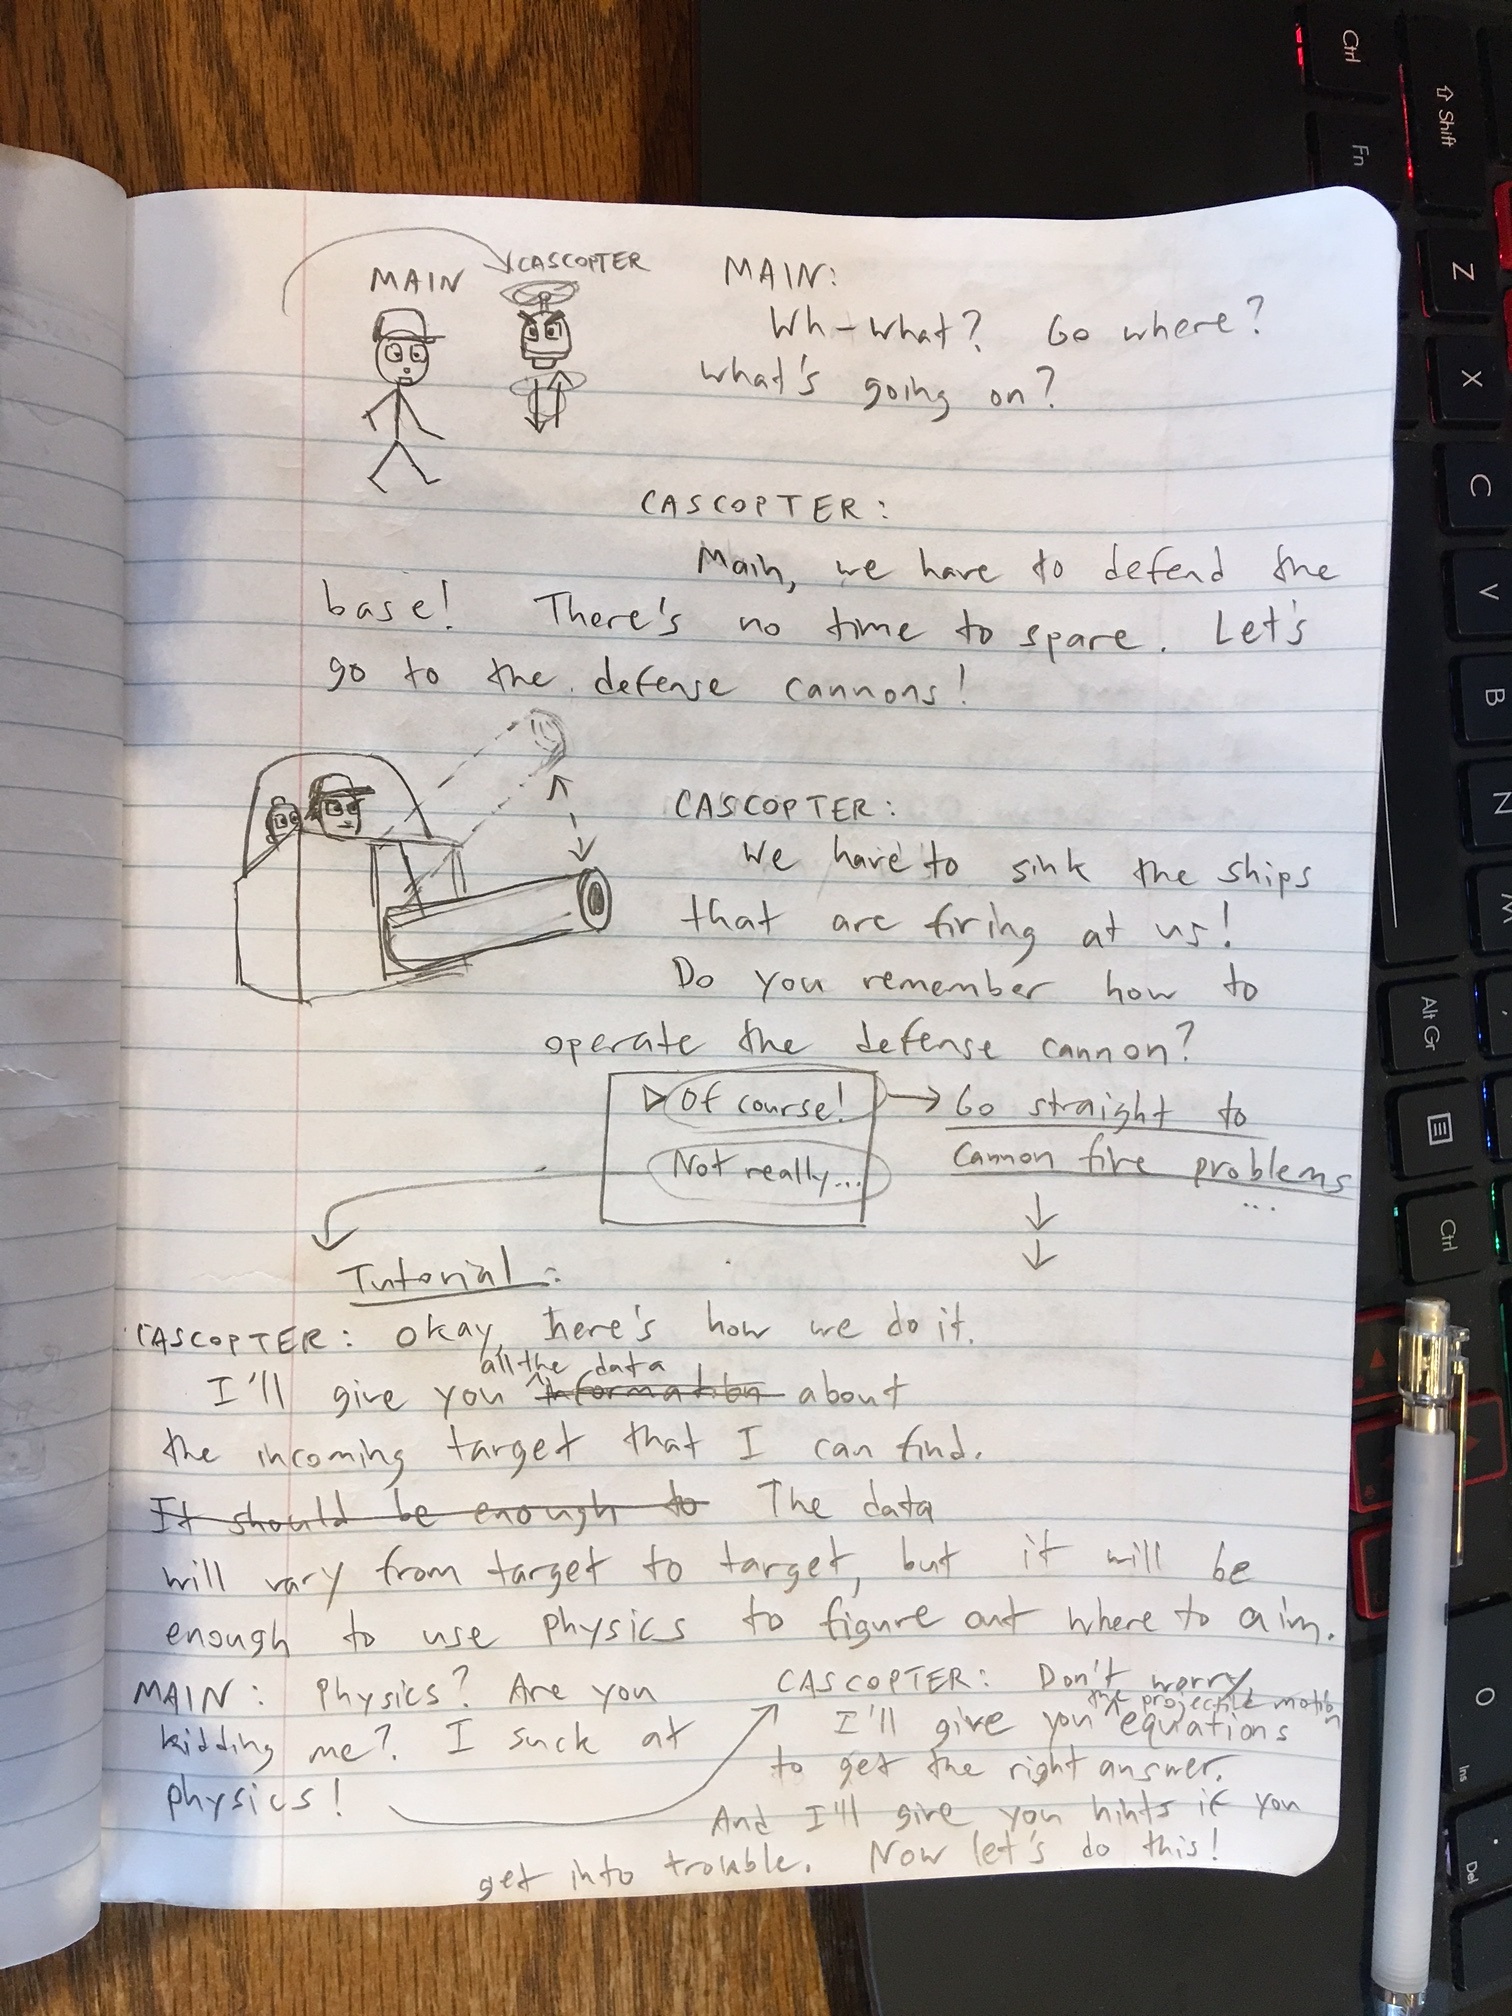 MAIN
CASCOPTER
MAIN:
Wh-what? Go where?
what's going on?
CASCOPTER:
Main, we have to defend the
base! There's no time to spare. Let's
go to the defense cannons!
CASCOPTER:
We have to sink the ships
that are firing at us!
Do you remember how to
operate the defense cannon?
Of course!
Go straight to
Cannon fire problems
...
Not really...
Tutorial:
CASCOPTER: Okay, here's how we do it.
all the data
I'll give you information about
the incoming target that I can find.
It should be enough to The data
will vary from target to target, but it will be
enough to use physics to figure out where to aim.
MAIN: Physics? Are you
kidding me? I suck at
physics!
CASCOPTER: Don't worry,
the projectile motion
I'll give you equations
to get the right answer.
And I'll give you hints if you
get into trouble. Now let's do this!
Ctrl
Shift
Fn
Z
X
C
V
B
N
M
Alt Gr
Ctrl
O
Ins
.
Del